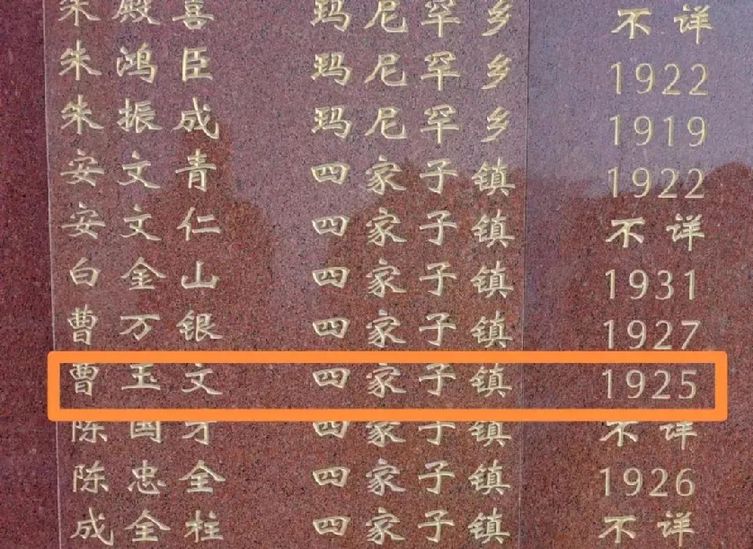 朱殿喜 玛尼罕乡 不详
朱鸿臣 玛尼罕乡 1922
朱振成 玛尼罕乡 1919
安文青 四家子镇 1922
安文仁 四家子镇 不详
白金山 四家子镇 1931
曹万银 四家子镇 1927
曹玉文 四家子镇 1925
陈国才 四家子镇 不详
陈忠全 四家子镇 1926
成全柱 四家子镇 不详